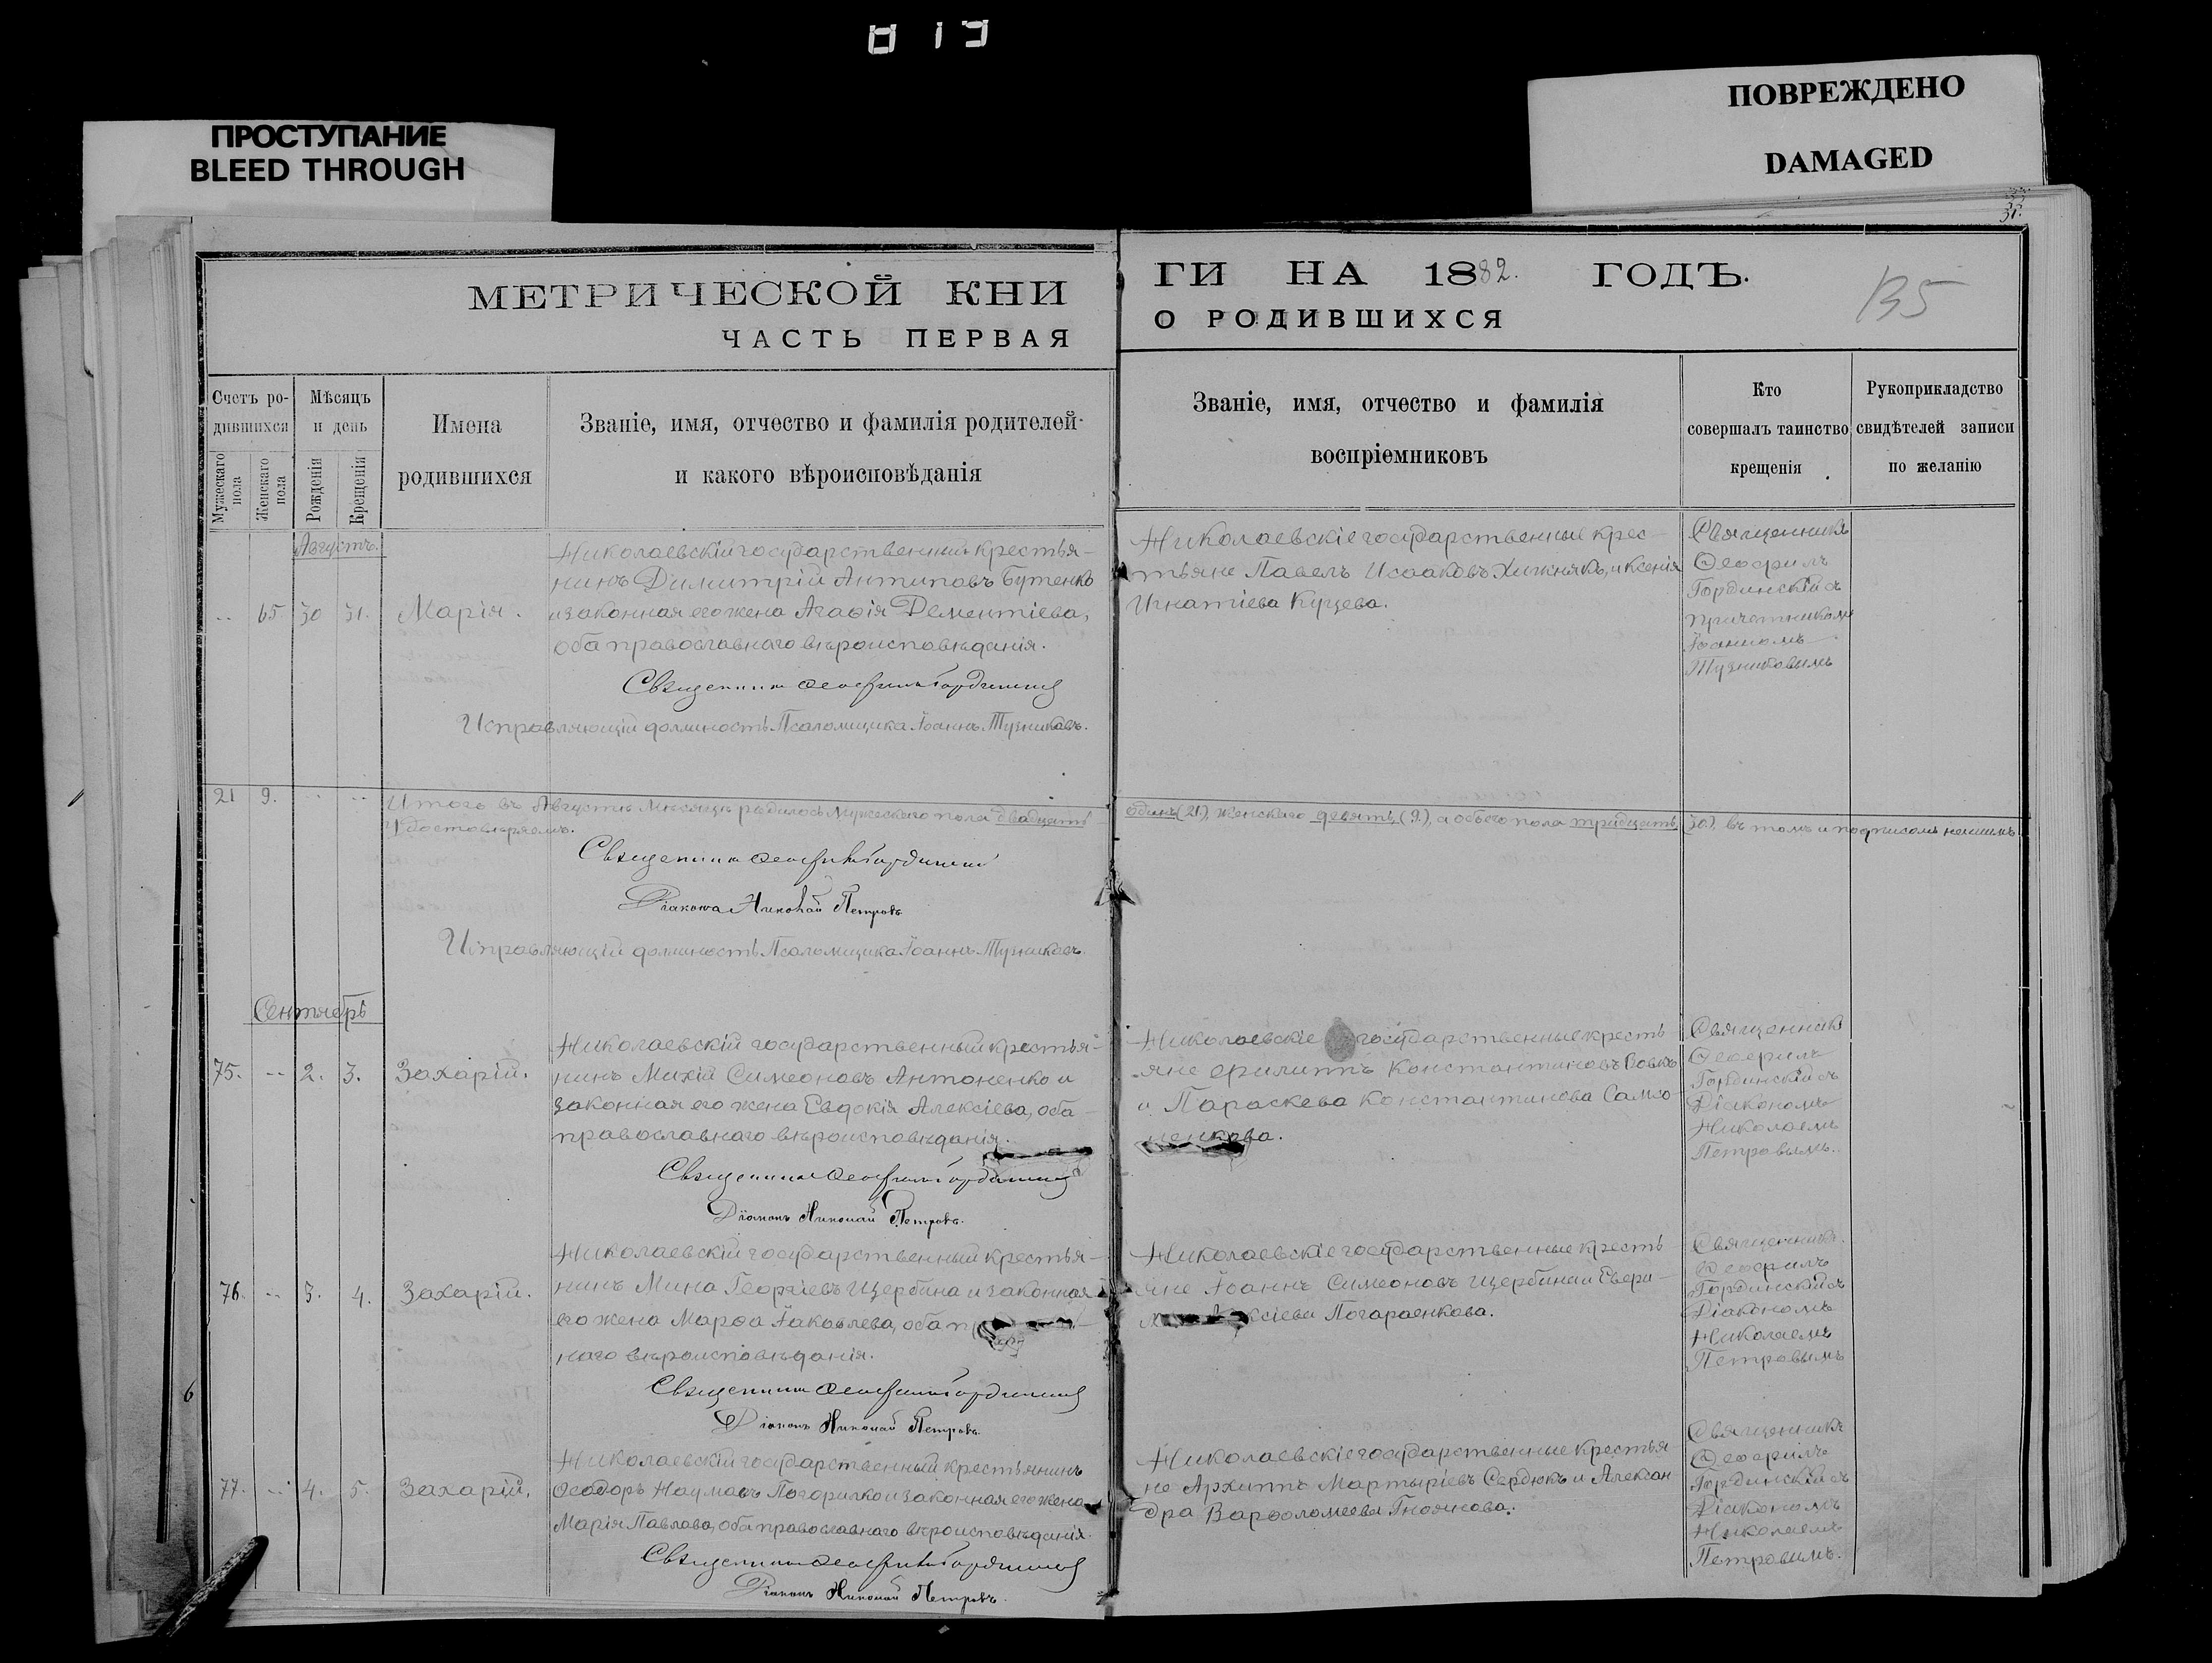 819
ПРОСТУПАНИЕ
BLEED THROUGH
ПОВРЕЖДЕНО
DAMAGED
31.
МЕТРИЧЕСКОЙ КНИ
ГИ НА 1882. ГОДЪ.
ЧАСТЬ ПЕРВАЯ
О РОДИВШИХСЯ
Счетъ ро-
дившихся
Мужескаго пола
Женскаго пола
Мѣсяцъ
и день
Рожденія
Крещенія
Имена
родившихся
Званіе, имя, отчество и фамилія родителей
и какого вѣроисповѣданія
Званіе, имя, отчество и фамилія
воспріемниковъ
Кто
совершалъ таинство
крещенія
Рукоприкладство
свидѣтелей записи
по желанію
Августъ.
65. 30 31. Марія.
Николаевскій государственный крестья-
нинъ Димитрій Антиповъ Бутенко
и законная его жена Агафія Дементіева,
оба православнаго вѣроисповѣданія.
Священникъ Ѳеофилъ Гординскій
Исправляющій должность Псаломщика Іоаннъ Тузниковъ.
Николаевскіе государственные крес-
тьяне Павелъ Исааковъ Хижнякъ, и Ксенія
Игнатіева Куцева.
Священникъ
Ѳеофилъ
Гординскій съ
причетникомъ
Іоанномъ
Тузниковымъ
21 9.
Итого въ Августѣ мѣсяцѣ родилось мужескаго пола двадцать
одинъ (21), женскаго девять (9), а обоего пола тридцать (30), въ томъ и подписомъ нашимъ
Удостовѣряемъ.
Священникъ Ѳеофилъ Гординскій
Діаконъ Николай Петровъ
Исправляющій должность Псаломщика Іоаннъ Тузниковъ.
Сентябрь
75. 2. 3. Захарій.
Николаевскій государственный крестья-
нинъ Михій Симеоновъ Антоненко и
законная его жена Евдокія Алексіева, оба
православнаго вѣроисповѣданія.
Священникъ Ѳеофилъ Гординскій
Діаконъ Николай Петровъ.
Николаевскіе государственные кресть-
яне Филиппъ Константиновъ Вовкъ
и Параскева Константинова Само-
ненкова.
Священникъ
Ѳеофилъ
Гординскій съ
Діакономъ
Николаемъ
Петровымъ.
76. 3. 4. Захарій.
Николаевскій государственный крестья-
нинъ Мина Георгіевъ Щербина и законная
его жена Марѳа Іаковлева, оба
наго вѣроисповѣданія.
Священникъ Ѳеофилъ Гординскій
Діаконъ Николай Петровъ.
Николаевскіе государственные кресть-
яне Іоаннъ Симеоновъ Щербина и
Погараенкова.
Священникъ
Ѳеофилъ
Гординскій съ
Діакономъ
Николаемъ
Петровымъ
77. 4. 5. Захарій.
Николаевскій государственный крестьянинъ
Ѳеодоръ Наумовъ Погорилко и законная его жена
Марія Павлова, оба православнаго вѣроисповѣданія.
Священникъ Ѳеофилъ Гординскій
Діаконъ Николай Петровъ.
Николаевскіе государственные крестья-
не Архиппъ Мартыріевъ Сердюкъ и Алексан-
дра Варѳоломеева Гноянкова.
Священникъ
Ѳеофилъ
Гординскій съ
Діакономъ
Николаемъ
Петровымъ.